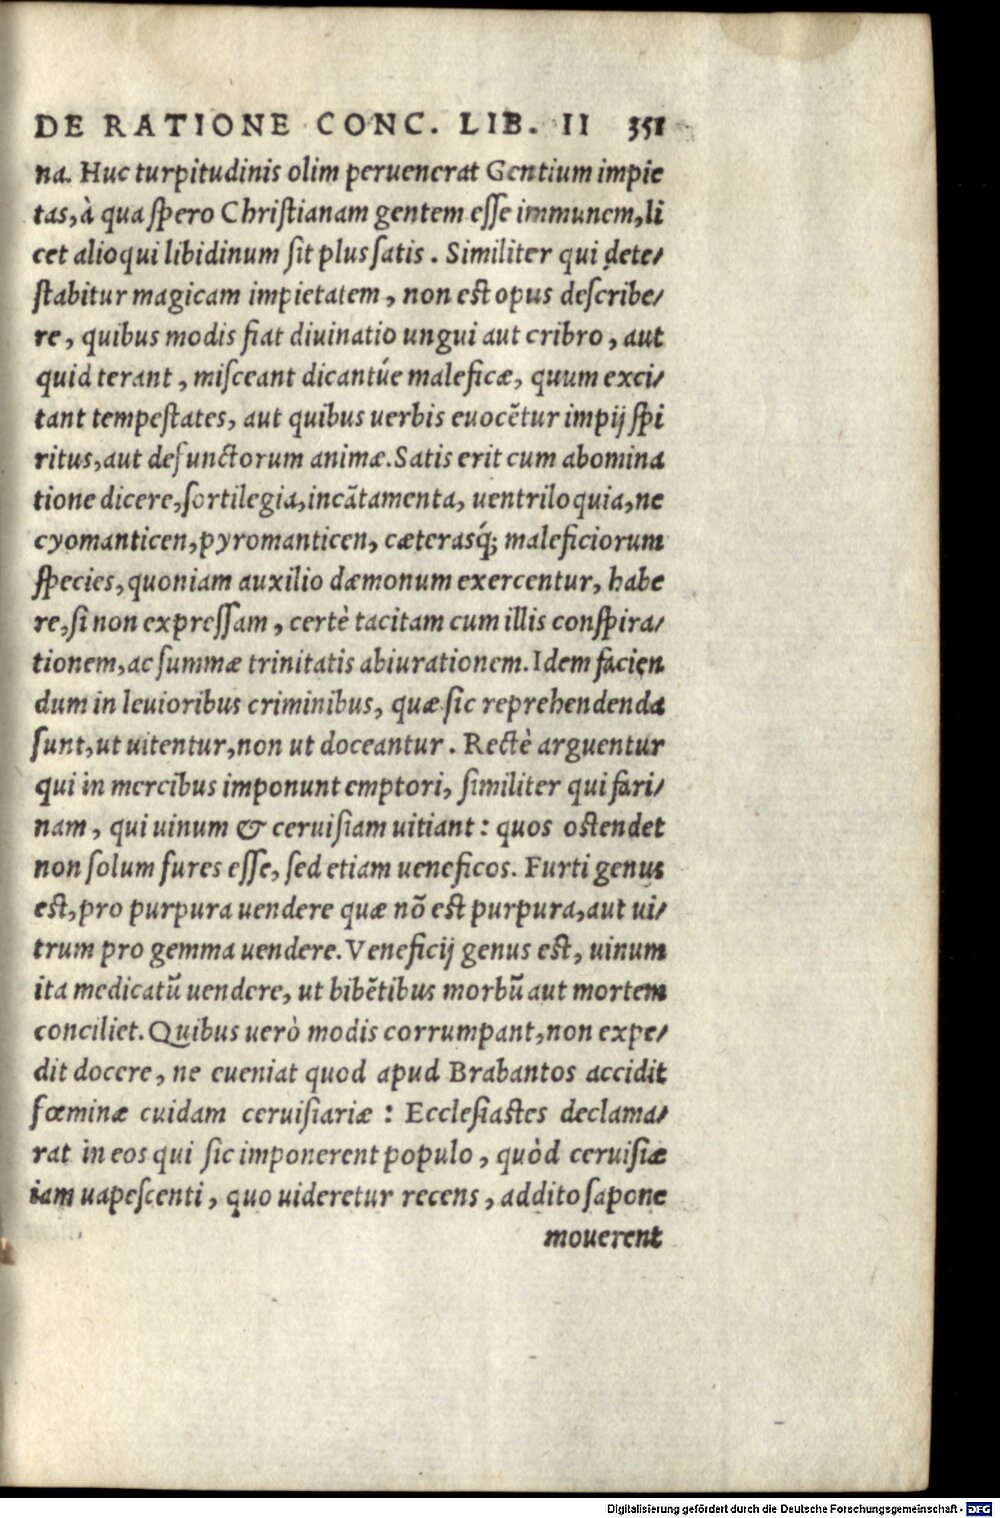 DE RATIONE CONC. LIB. II 351
na. Huc turpitudinis olim peruenerat Gentium impie
tas, à qua spero Christianam gentem esse immunem, li
cet alioqui libidinum sit plus satis. Similiter qui dete/
stabitur magicam impietatem, non est opus describe/
re, quibus modis fiat diuinatio ungui aut cribro, aut
quid terant, misceant dicantúe maleficæ, quum exci/
tant tempestates, aut quibus uerbis euocẽtur impij spi
ritus, aut defunctorum animæ. Satis erit cum abomina
tione dicere, sortilegia, incãtamenta, uentriloquia, ne
cyomanticen, pyromanticen, cæterasq́; maleficiorum
species, quoniam auxilio dæmonum exercentur, habe
re, si non expressam, certè tacitam cum illis conspira/
tionem, ac summæ trinitatis abiurationem. Idem facien
dum in leuioribus criminibus, quæ sic reprehendenda
sunt, ut uitentur, non ut doceantur. Rectè arguentur
qui in mercibus imponunt emptori, similiter qui fari/
nam, qui uinum & ceruisiam uitiant: quos ostendet
non solum fures esse, sed etiam ueneficos. Furti genus
est, pro purpura uendere quæ nõ est purpura, aut ui/
trum pro gemma uendere. Veneficij genus est, uinum
ita medicatũ uendere, ut bibẽtibus morbũ aut mortem
conciliet. Quibus uerò modis corrumpant, non expe/
dit docere, ne eueniat quod apud Brabantos accidit
fœminæ cuidam ceruisiariæ: Ecclesiastes declama/
rat in eos qui sic imponerent populo, quòd ceruisiæ
iam uapescenti, quo uideretur recens, addito sapone
mouerent
Digitalisierung gefördert durch die Deutsche Forschungsgemeinschaft - DFG